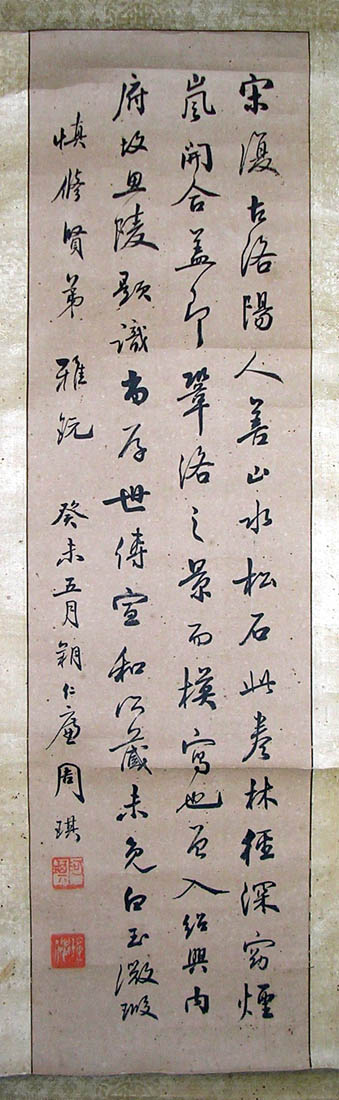 宋復古洛陽人善山水松石此卷林徑深窈煙
嵐開合蓋即鞏洛之景而模寫也曾入紹興內
府故思陵題識尚存世傳宣和收藏未免白玉微瑕
慎修賢弟 雅玩 癸未五月朔仁廬周琪